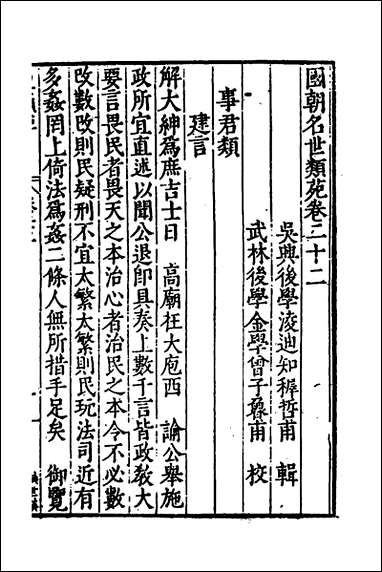 國朝名世類苑卷二十二
吳興後學淩迪知穉哲甫 輯
武林後學金學曾子魯甫 校
事君類
建言
解大紳爲庶吉士日 高廟在大庖西 諭公舉施
政所宜直述以聞公退卽具奏上數千言皆政教大
要言畏民者畏天之本治心者治民之本今不必數
改數改則民疑刑不宜太繁太繁則民玩法司近有
多姦罔上倚法爲姦二條人無所措手足矣 御覽